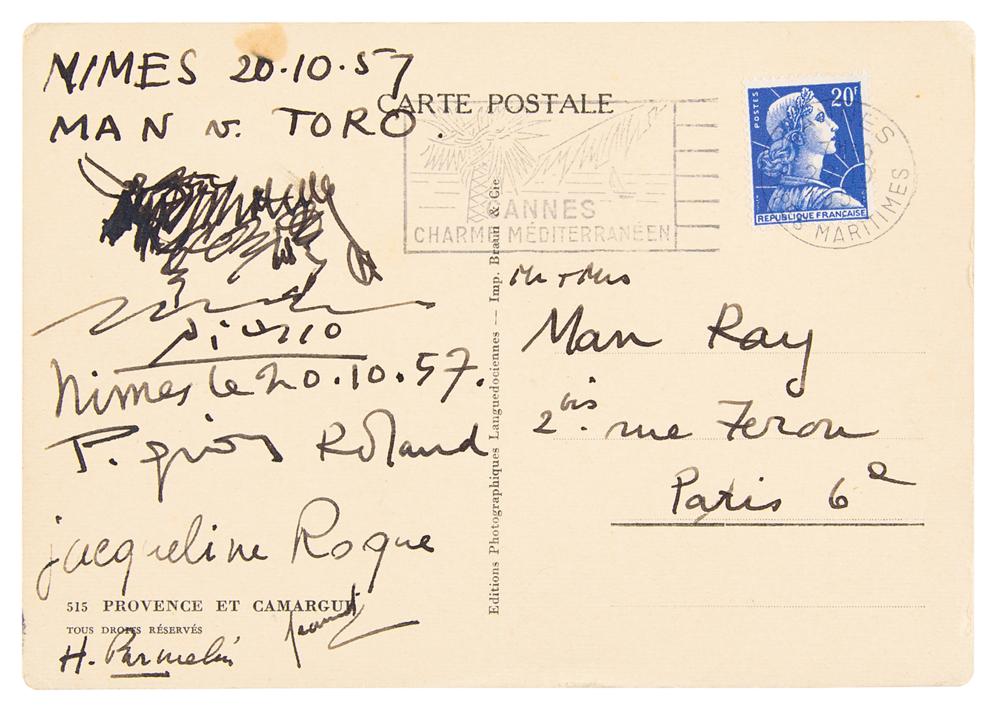 NIMES 20.10.57
MAN v. TORO.
Picasso
Nimes le 20.10.57.
P. Roland
Jacqueline Roque
515 PROVENCE ET CAMARGUE
TOUS DROITS RÉSERVÉS
H. Parmelin
CARTE POSTALE
CANNES
CHARME MÉDITERRANÉEN
Editions Photographiques Languedociennes — Imp. Braun & Cie
POSTES
20F
REPUBLIQUE FRANÇAISE
MARITIMES
Mr + Mrs
Man Ray
2 bis. rue Ferou
Paris 6e